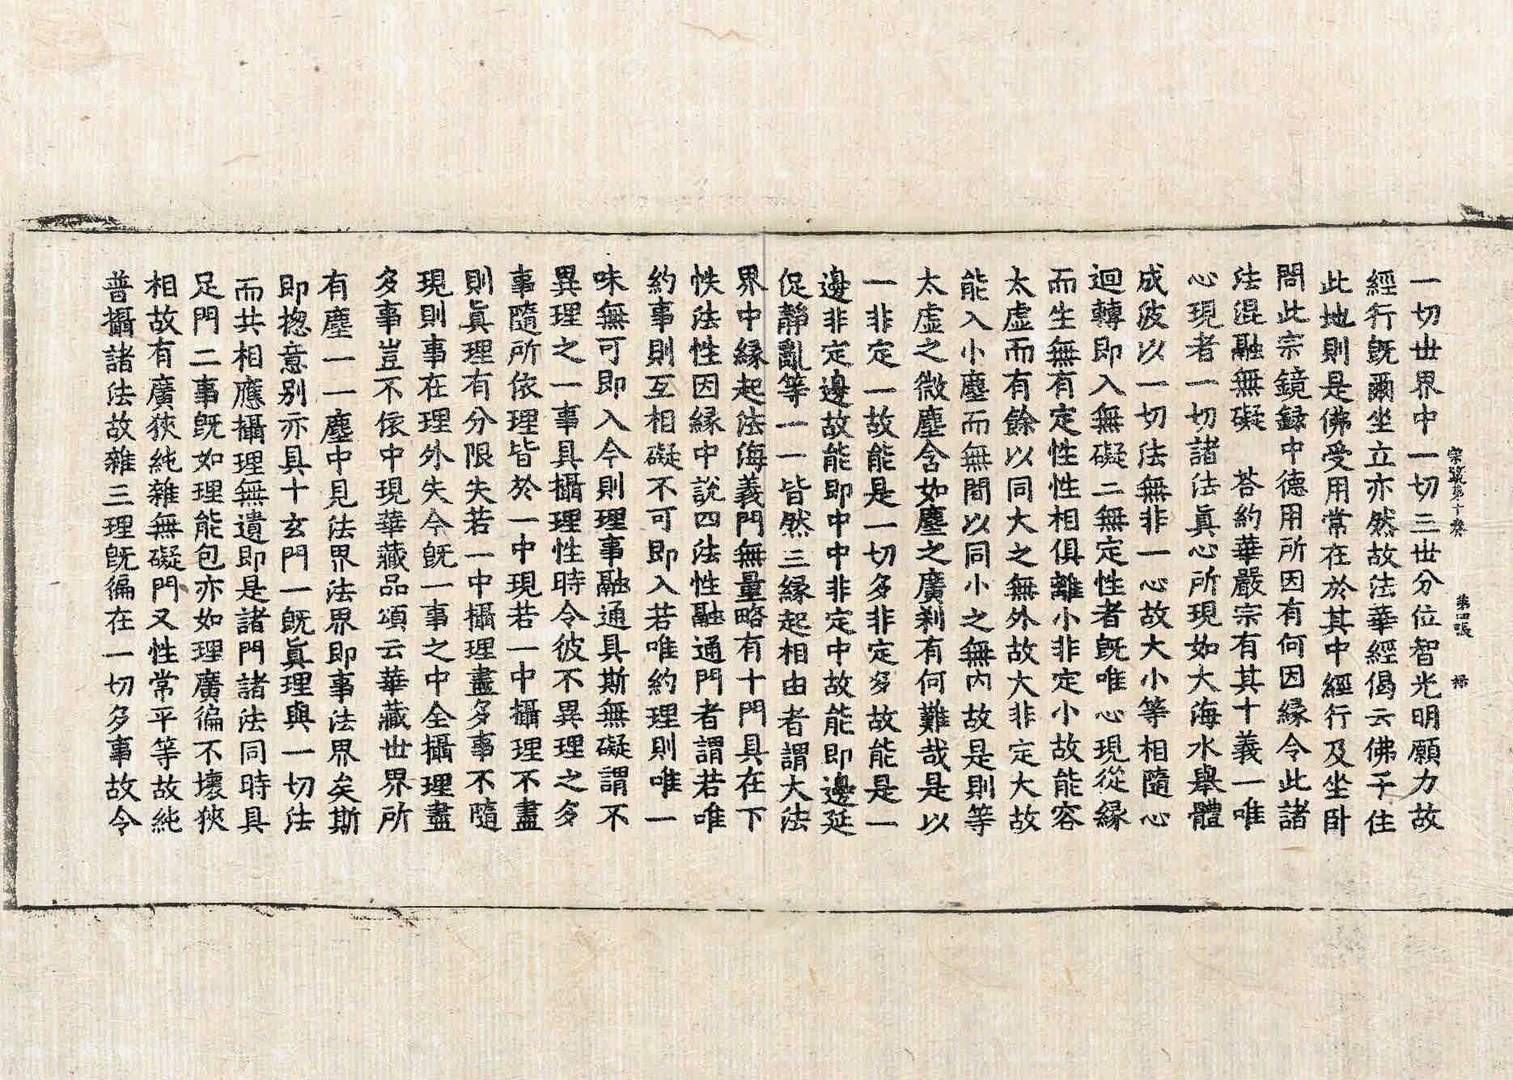 宗鏡第十卷 第四張
一切世界中一切三世分位智光明願力故
經行旣爾坐立亦然故法華經偈云佛子住
此地則是佛受用常在於其中經行及坐卧
問此宗鏡録中德用所因有何因緣令此諸
法混融無礙 荅約華嚴宗有其十義一唯
心現者一切諸法眞心所現如大海水舉體
成波以一切法無非一心故大小等相隨心
迴轉即入無礙二無定性者旣唯心現從緣
而生無有定性性相俱離小非定小故能容
太虛而有餘以同大之無外故大非定大故
能入小塵而無間以同小之無內故是則等
太虛之微塵含如塵之廣刹有何難哉是以
一非定一故能是一切多非定多故能是一
邊非定邊故能即中中非定中故能即邊延
促靜亂等一一皆然三緣起相由者謂大法
界中緣起法海義門無量略有十門具在下
帙法性因緣中說四法性融通門者謂若唯
約事則互相礙不可即入若唯約理則唯一
味無可即入今則理事融通具斯無礙謂不
異理之一事具攝理性時令彼不異理之多
事隨所依理皆於一中現若一中攝理不盡
則眞理有分限失若一中攝理盡多事不隨
現則事在理外失今旣一事之中全攝理盡
多事豈不依中現華藏品頌云華藏世界所
有塵一一塵中見法界法界即事法界矣斯
即揔意别亦具十玄門一旣眞理與一切法
而共相應攝理無遺即是諸門諸法同時具
足門二事旣如理能包亦如理廣徧不壞狹
相故有廣狹純雜無礙門又性常平等故純
普攝諸法故雜三理旣徧在一切多事故令